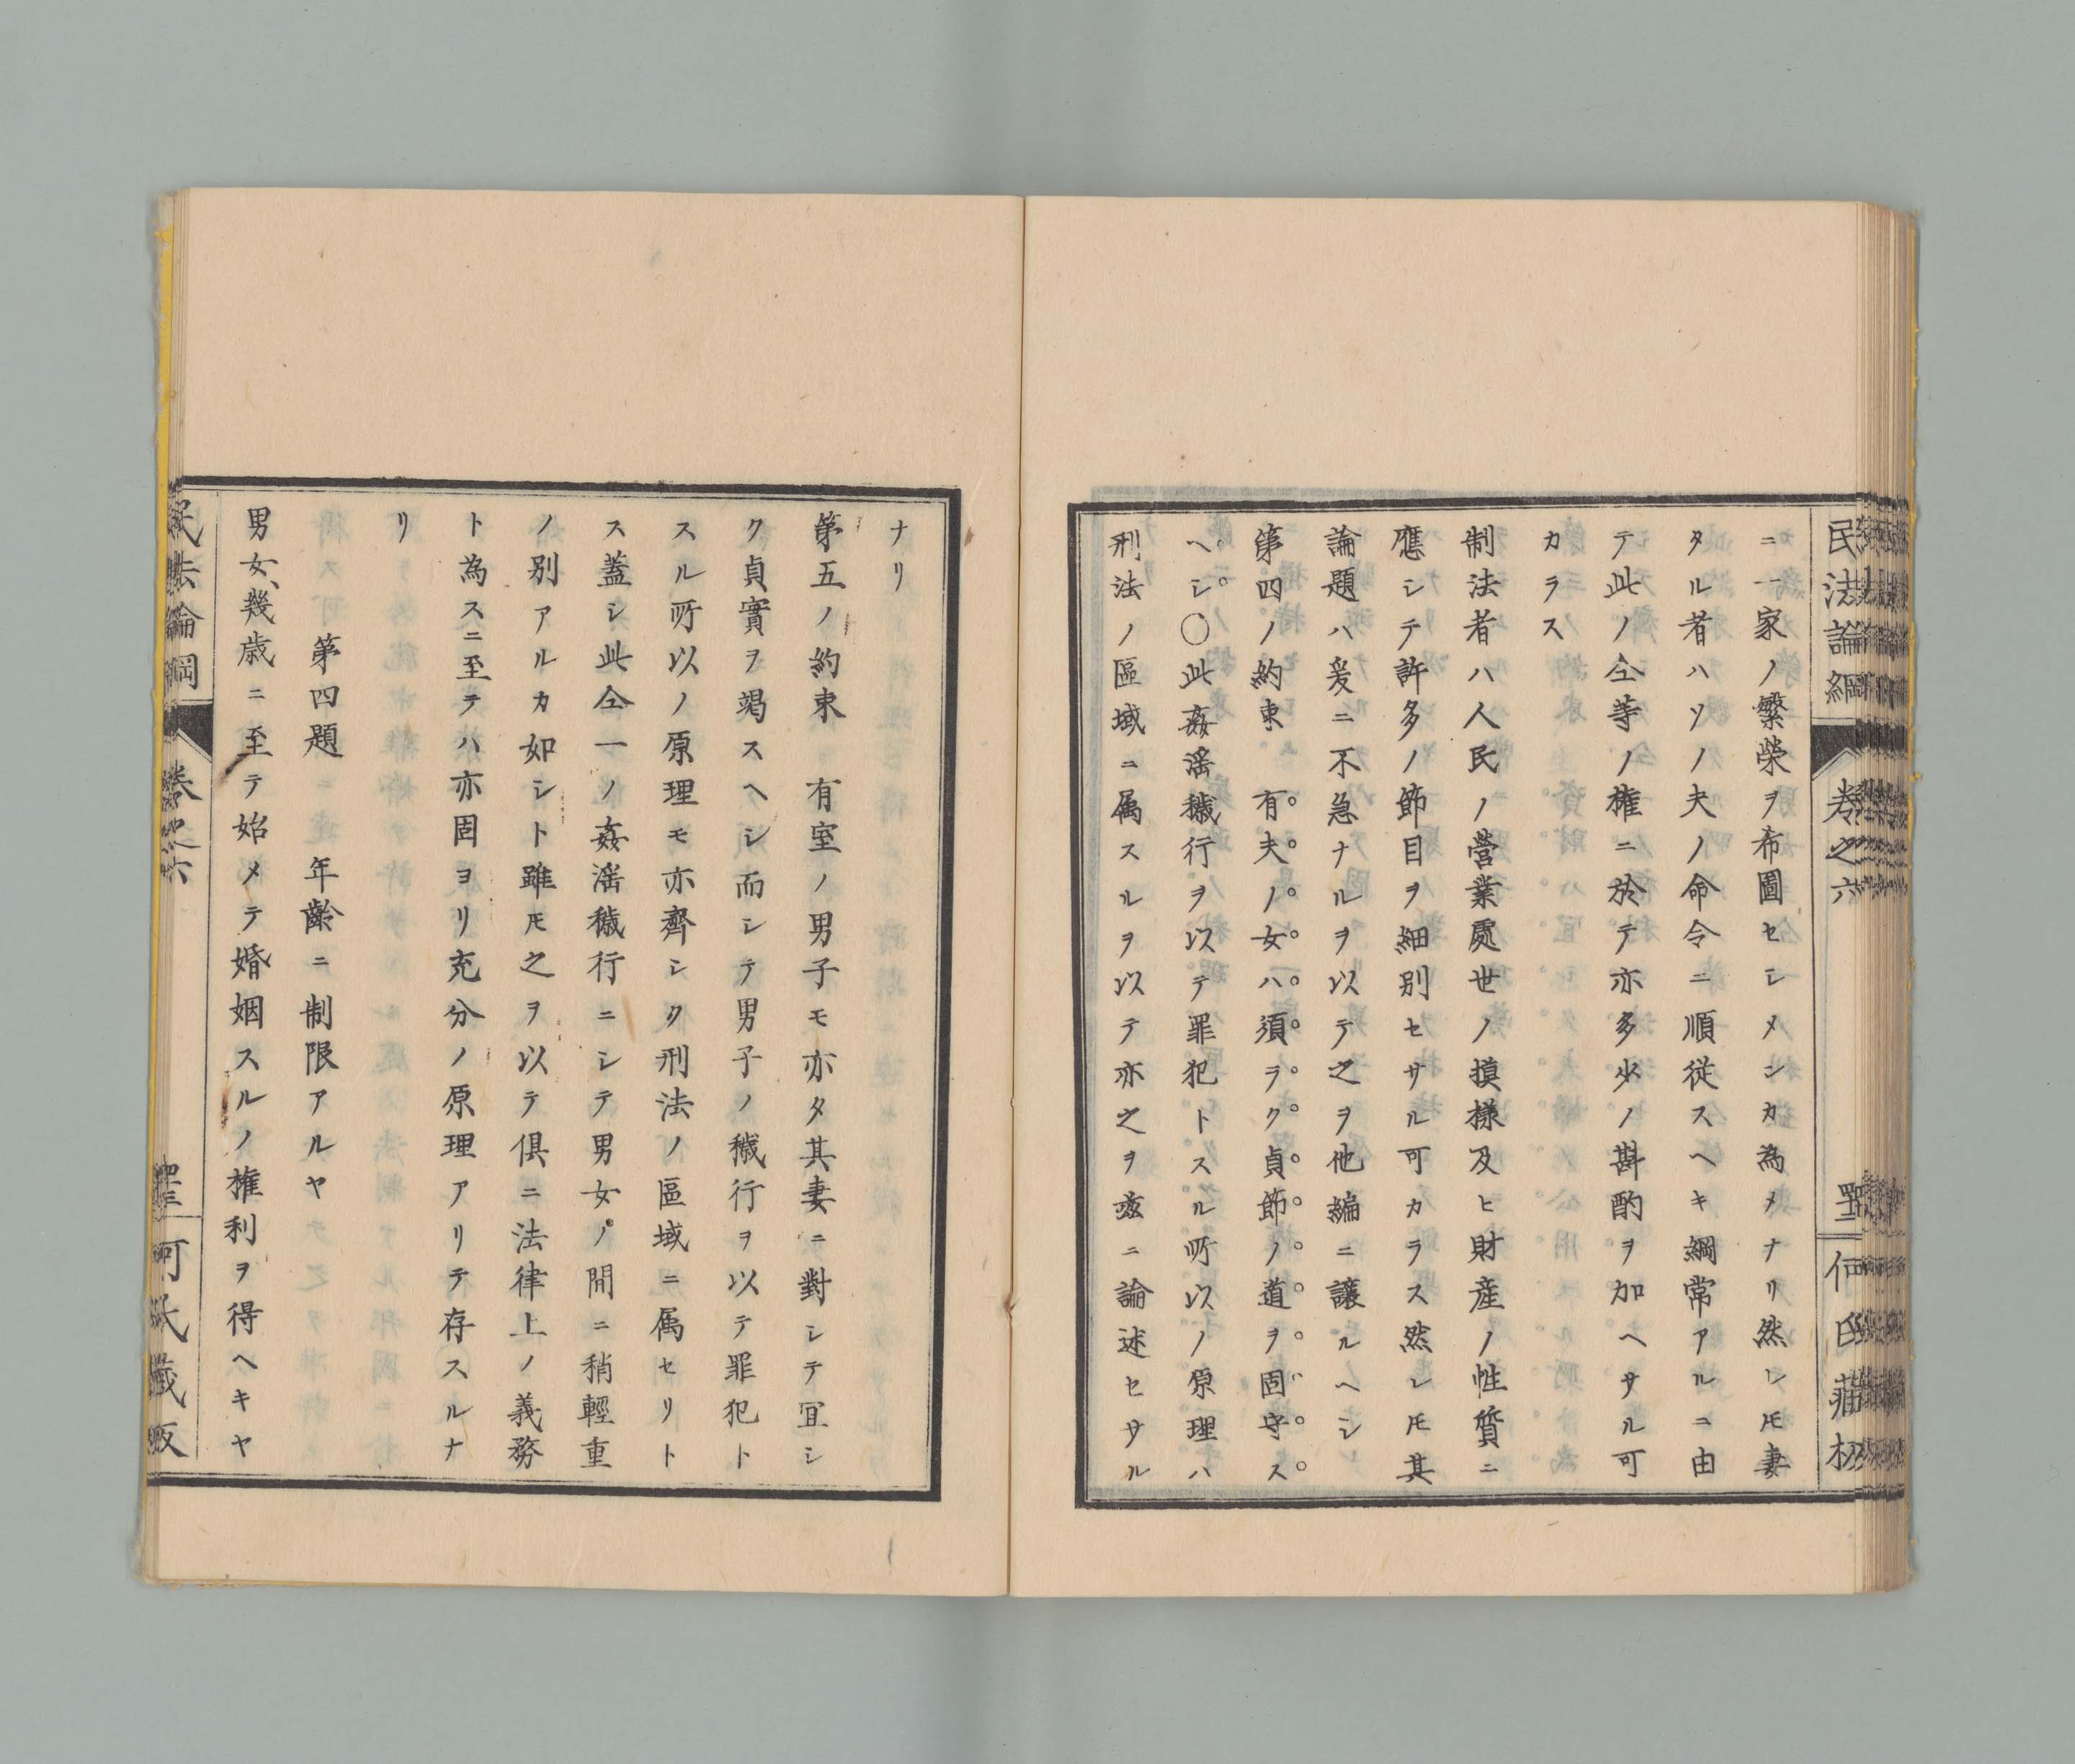 民法論綱
卷之六
何氏藏板
ニ一家ノ繁榮ヲ布圖セシメンカ為メナリ然レ𪜈妻
タル者ハソノ夫ノ命令ニ順從スヘキ綱常アルニ由
テ此ノ仝等ノ権ニ於テ亦多少ノ斟酌ヲ加ヘサル可
カラス
制法者ハ人民ノ營業處世ノ摸樣及ヒ財産ノ性質ニ
應シテ許多ノ節目ヲ細別セサル可カラス然レ𪜈其
論題ハ爰ニ不急ナルヲ以テ之ヲ他編ニ讓ルヘシ
第四ノ約束　有夫ノ女ハ須ラク貞節ノ道ヲ固守ス
ヘシ〇此姦滛穢行ヲ以テ罪犯トスル所以ノ原理ハ
刑法ノ區域ニ属スルヲ以テ亦之ヲ玆ニ論述セサル
ナリ
第五ノ約束　有室ノ男子モ亦タ其妻ニ對シテ冝シ
ク貞實ヲ竭スヘシ而シテ男子ノ穢行ヲ以テ罪犯ト
スル所以ノ原理モ亦齊シク刑法ノ區域ニ属セリト
ス蓋シ此仝一ノ姦滛穢行ニシテ男女ノ間ニ稍輕重
ノ別アルカ如シト雖𪜈之ヲ以テ倶ニ法律上ノ義務
ト為スニ至テハ亦固ヨリ充分ノ原理アリテ存スルナ
リ
第四題　年齡ニ制限アルヤ
男女幾歳ニ至テ始メテ婚姻スルノ権利ヲ得ヘキヤ
民法論綱
卷之六
何氏藏版